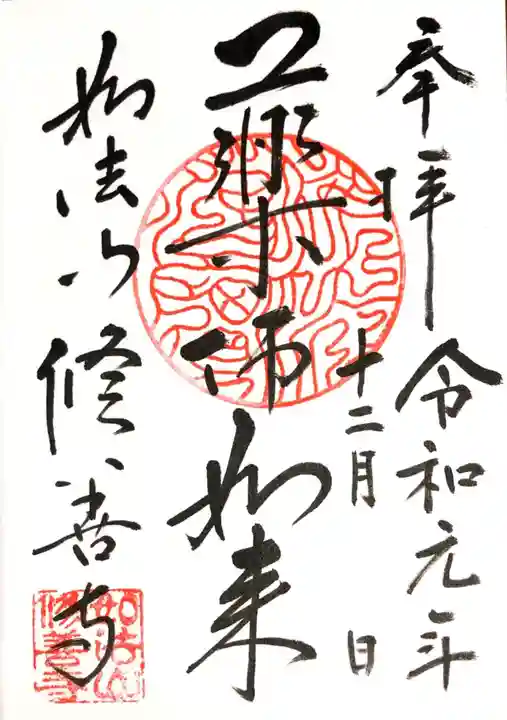 奉拝 令和元年
十二月 日
薬師如来
如法山 修善寺